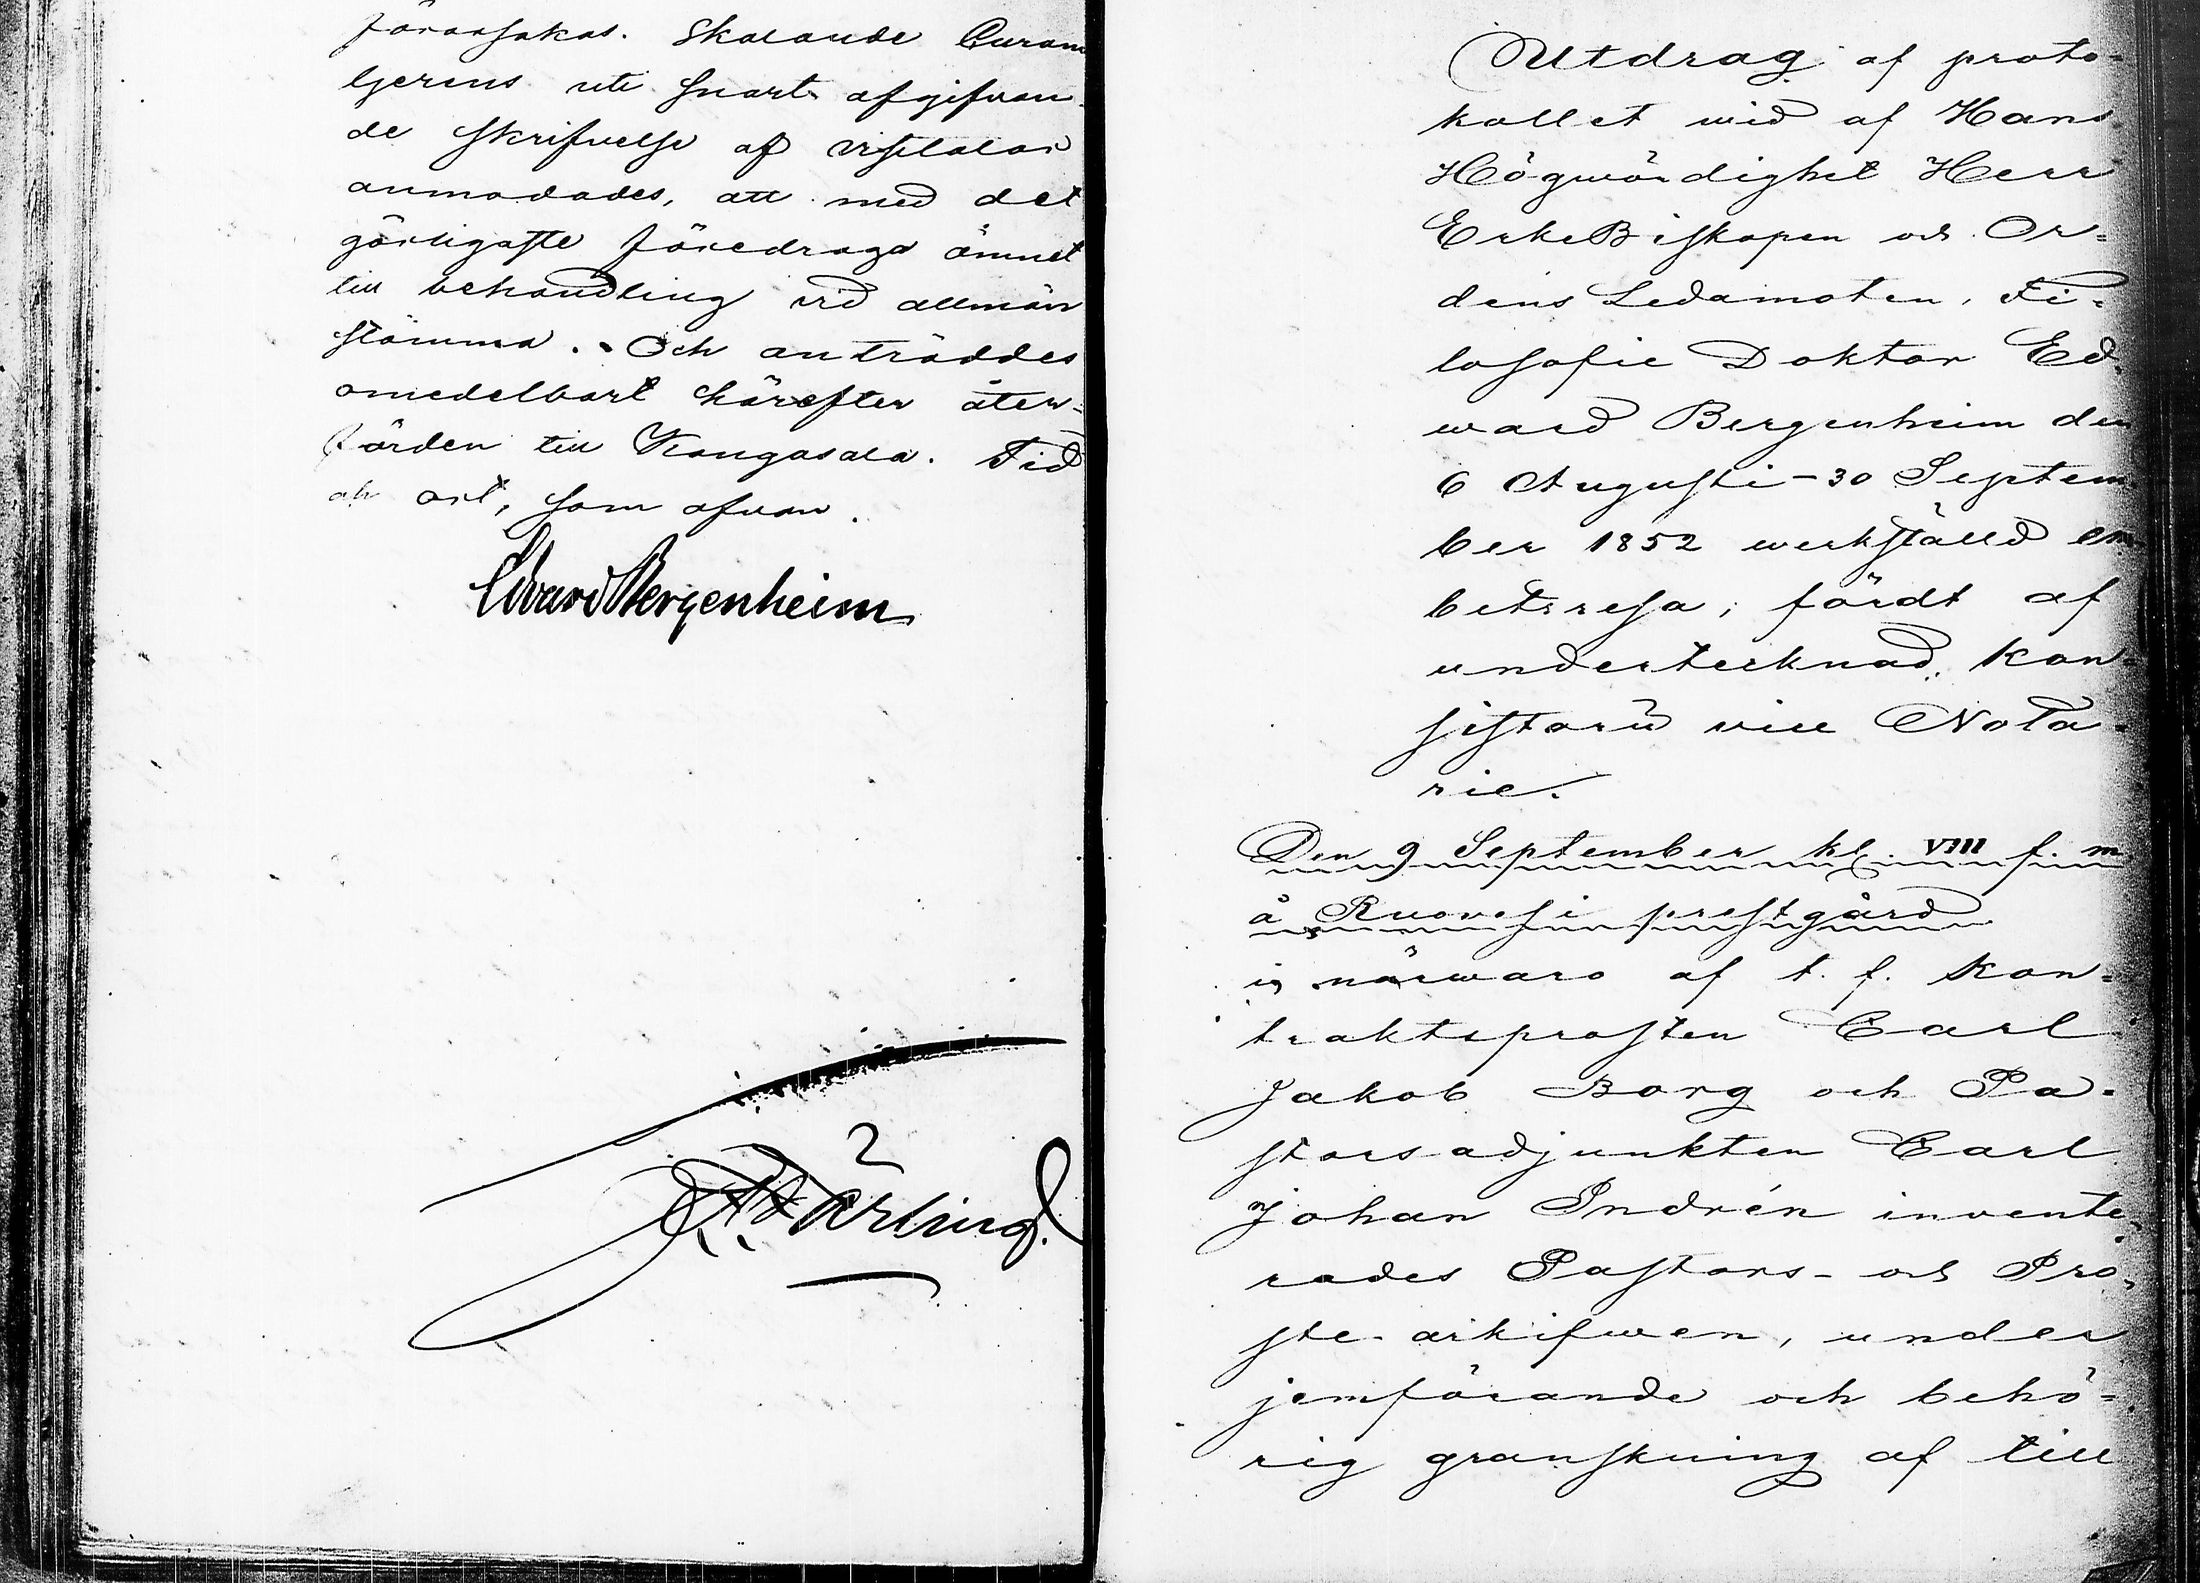 förorsakas. Skolande Curam
Gerens uti snart afgifvan
de skrifvelse af visitator
anmodades, att med det
görligaste föredraga ämnet
till behandling vid allmän
stämma. Och anträddes
omedelbart härefter åter=
färden till Kangasala. Tid
och ort, som ofvan.
Edvard Bergenheim
Utdrag af proto=
kollet wid af Hans
Högwördighet Herr
ErkeBiskopen och Or=
dens Ledamoten, Fi=
losofie Doktor Ed=
ward Bergenheim den
6 Augusti - 30 Septem
ber 1852 werkställd em
betsresa; fördt af
undertecknad, Kon=
sistorii vice Nota=
rie.
Den 9 September kl. VIII f. m.
å Ruovesi prestgård
i närwaro af t. f. Kon=
traktsprosten Carl
Jakob Borg och Pa=
storsadjunkten Carl
Johan Indrén invente=
rades Pastors- och Pro=
ste-arkifwen, under
jemförande och behö=
rig granskning af till